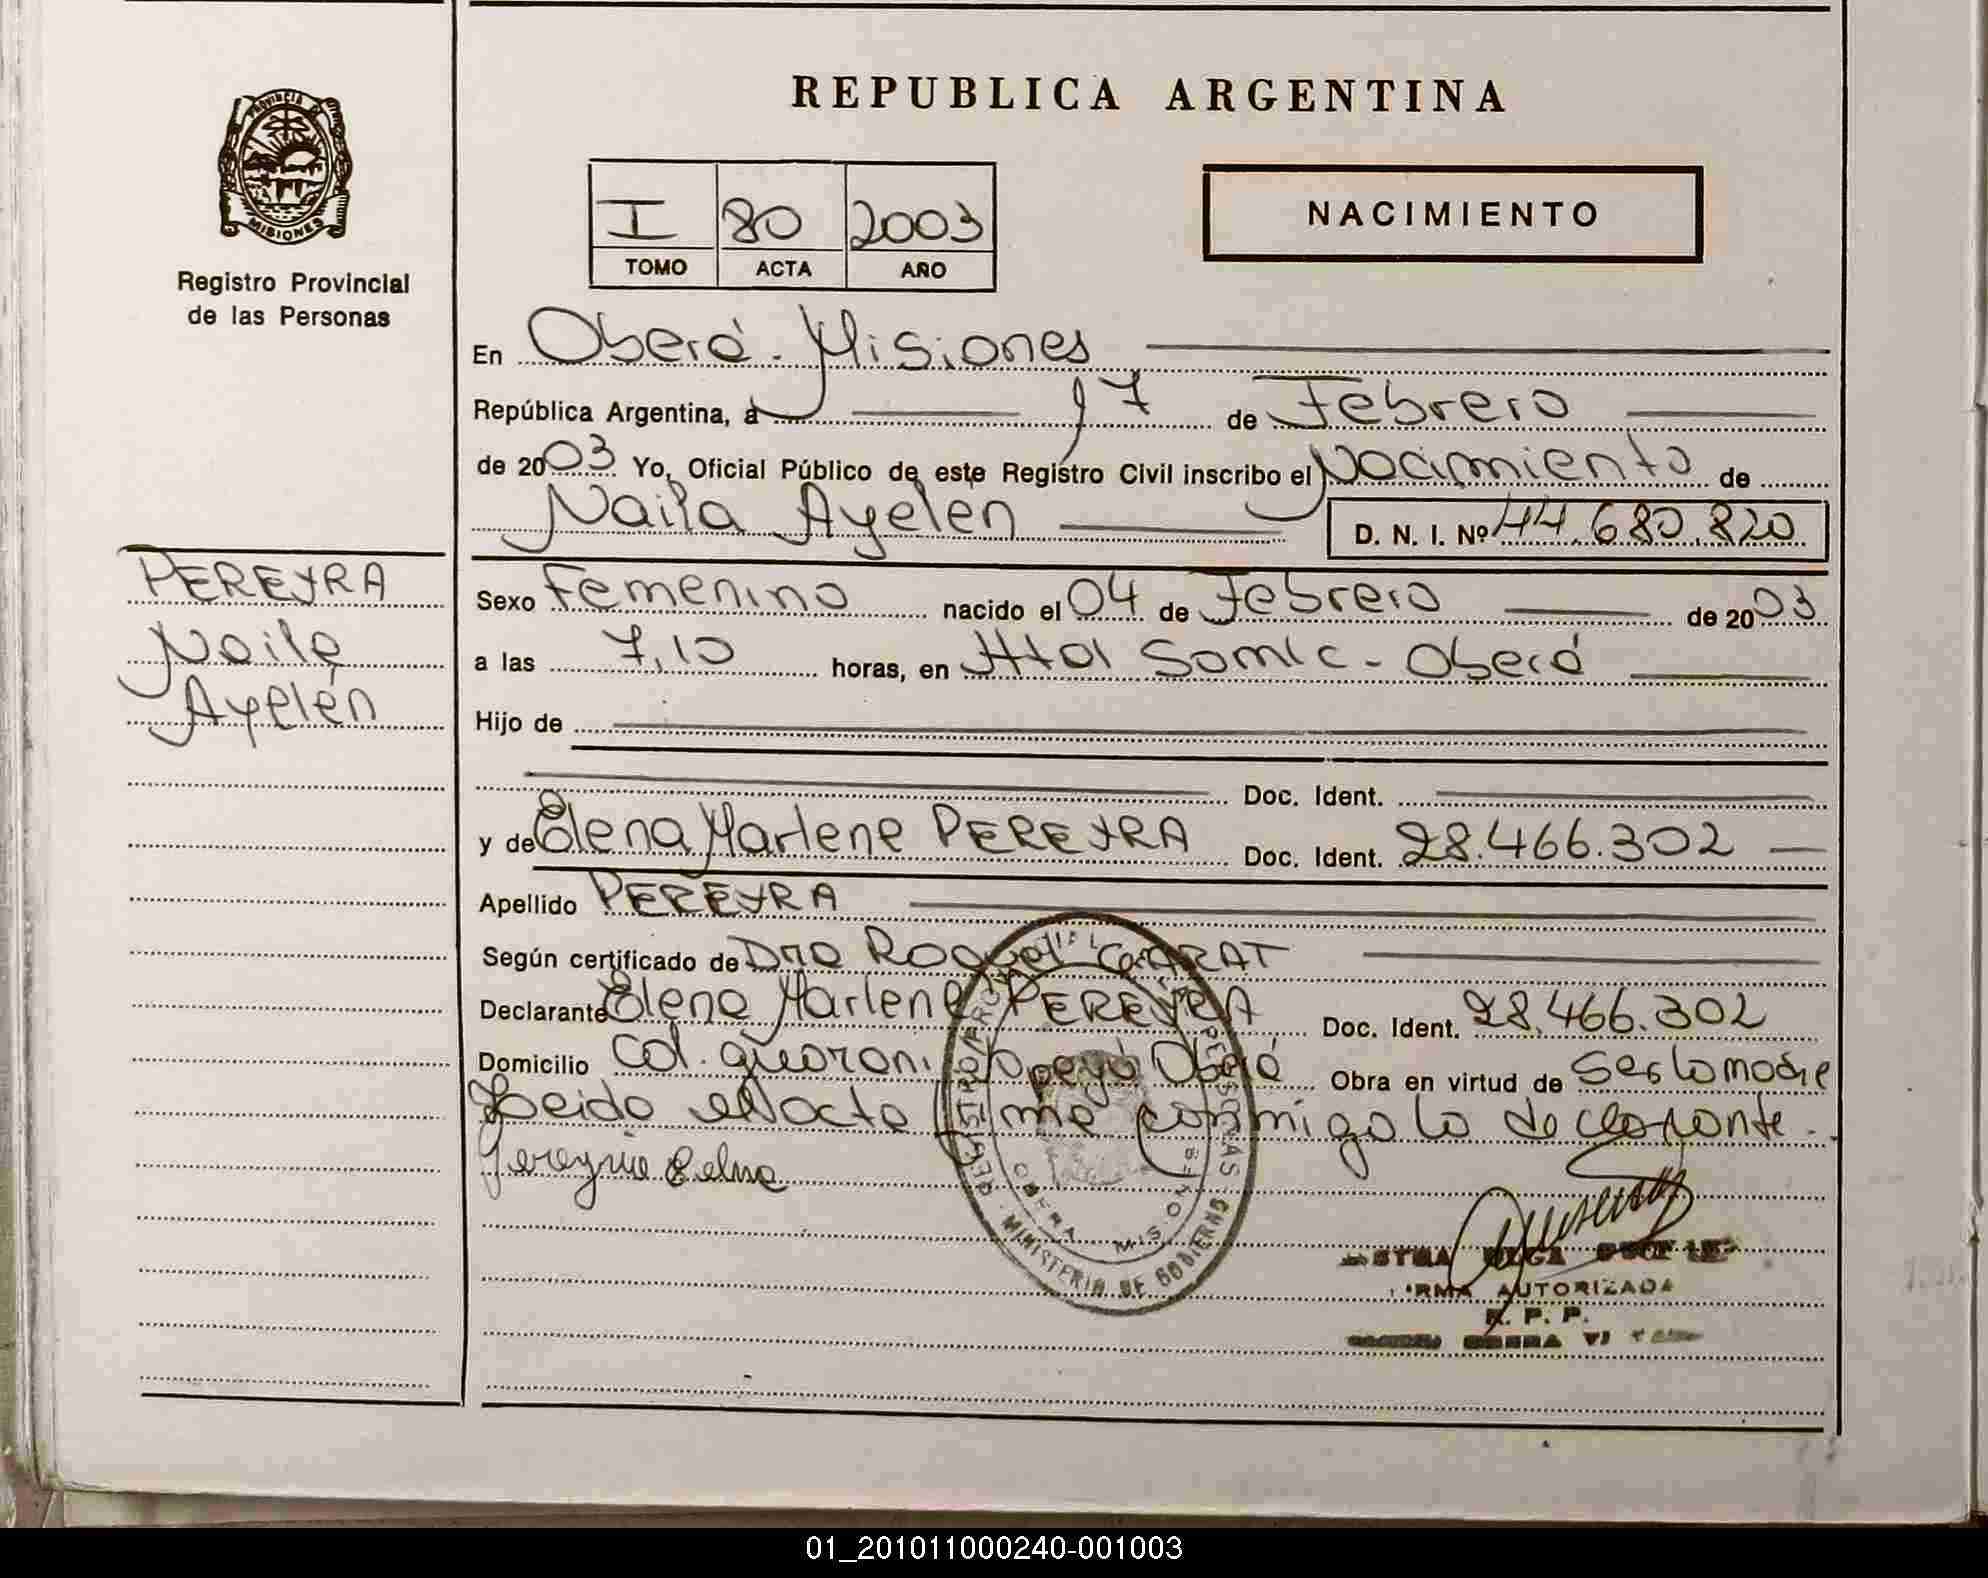 REPUBLICA ARGENTINA
PROVINCIA DE
MISIONES
Registro Provincial
de las Personas
I 80 2003
TOMO ACTA AÑO
NACIMIENTO
En Oberá - Misiones
República Argentina, a 17 de Febrero
de 2003 Yo, Oficial Público de este Registro Civil inscribo el Nacimiento de
Naila Ayelen D. N. I. Nº 44.680.820
PEREYRA
Naila
Ayelén
Sexo Femenino nacido el 04 de Febrero de 2003
a las 7,10 horas, en Htal Samic - Oberá
Hijo de
Doc. Ident.
y de Elena Marlene PEREYRA Doc. Ident. 28.466.302
Apellido PEREYRA
Según certificado de Dra Raquel
Declarante Elena Marlene PEREYRA Doc. Ident. 28.466.302
Domicilio Col. guarani Oberá Obra en virtud de ser la madre
Leida el acta firma conmigo la declarante.
Pereyra Elena
REGISTRO PROVINCIAL DE LAS PERSONAS
OBERA MISIONES
MINISTERIO DE GOBIERNO
FIRMA AUTORIZADA
R. P. P.
01_201011000240-001003